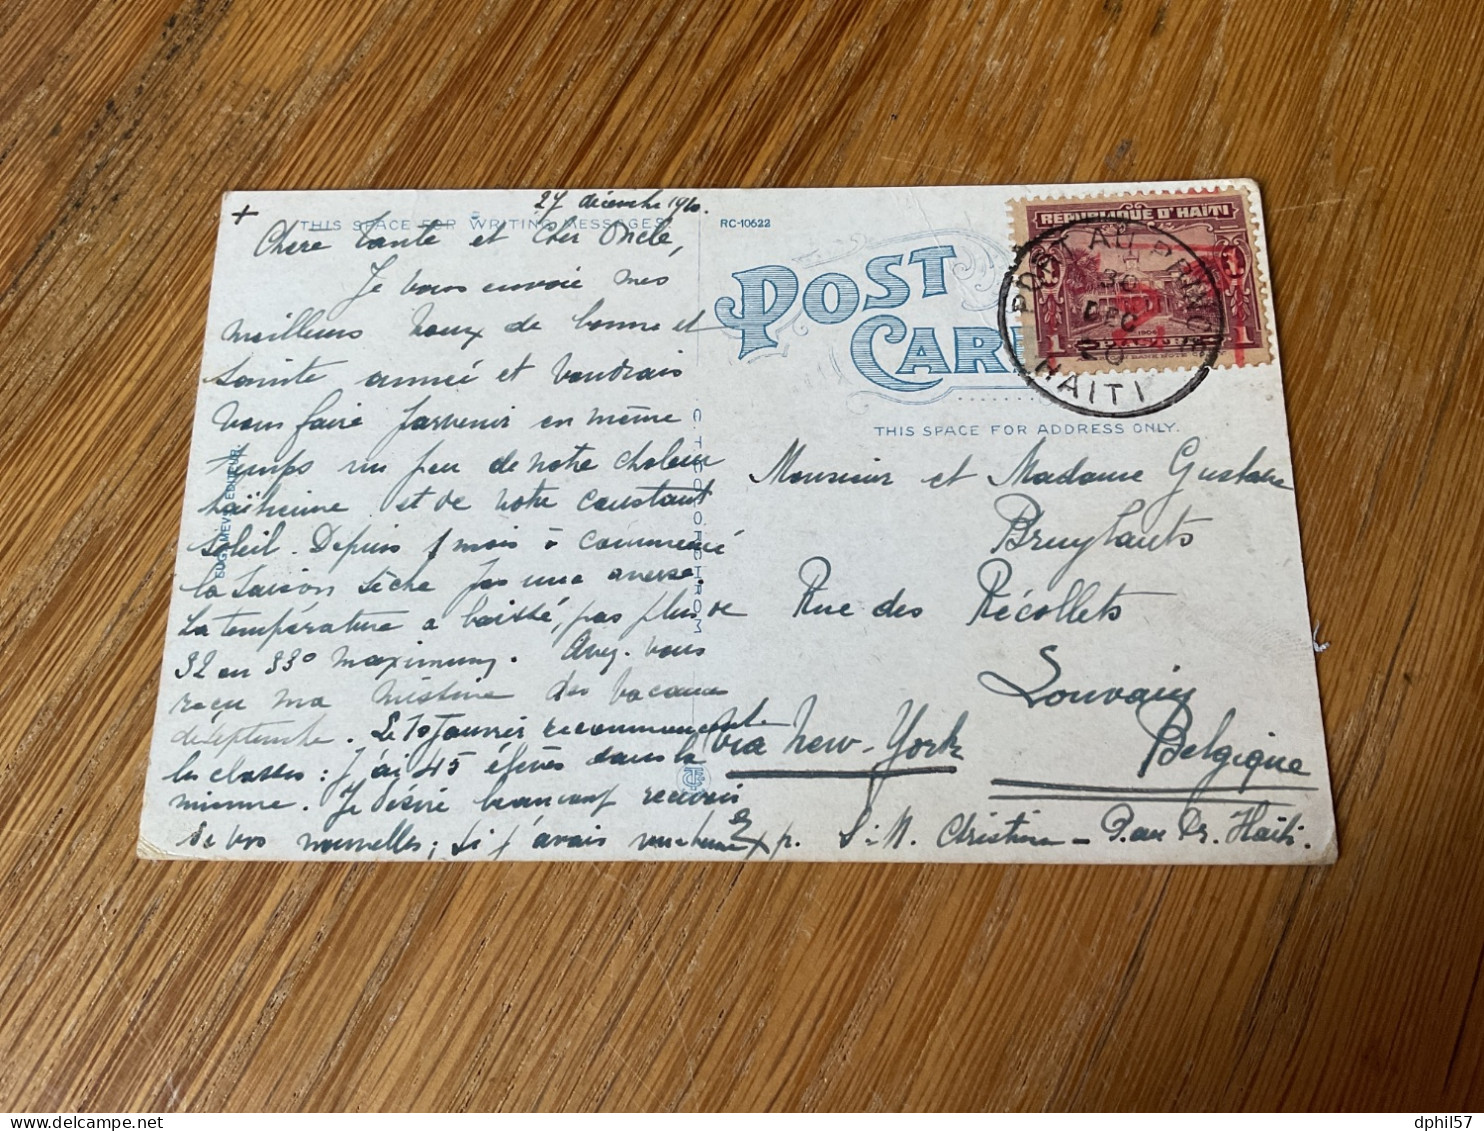 27 décembre 1920.
+
THIS SPACE FOR WRITING MESSAGES
Chère Tante et Cher Oncle,
Je vous envoie mes
meilleurs voeux de bonne et
sainte année et voudrais
vous faire parvenir en même
temps un peu de notre chaleur
haïtienne et de notre constant
soleil. Depuis 1 mois a commencé
la saison sèche pas une averse.
La température a baissé, pas plus de
32 ou 33° maximum. Avez-vous
reçu ma missive des vacances
de septembre. Le 10 Janvier recommencent
les classes: J'ai 45 élèves dans la
mienne. Je désire beaucoup recevoir
de vos nouvelles; si j'avais
EUG. MEVS, EDITEUR.
C. T. PHOTOCHROM
RC-10622
POST
CARD
THIS SPACE FOR ADDRESS ONLY.
REPUBLIQUE D'HAITI
1 1
PORT AU PRINCE
30
DEC
20
HAITI
Monsieur et Madame Gustave
Bruylants
Rue des Récollets
Louvain
Via New-York
Belgique
exp. S. M. Christine - P. au Pr. Haïti.
dphil57